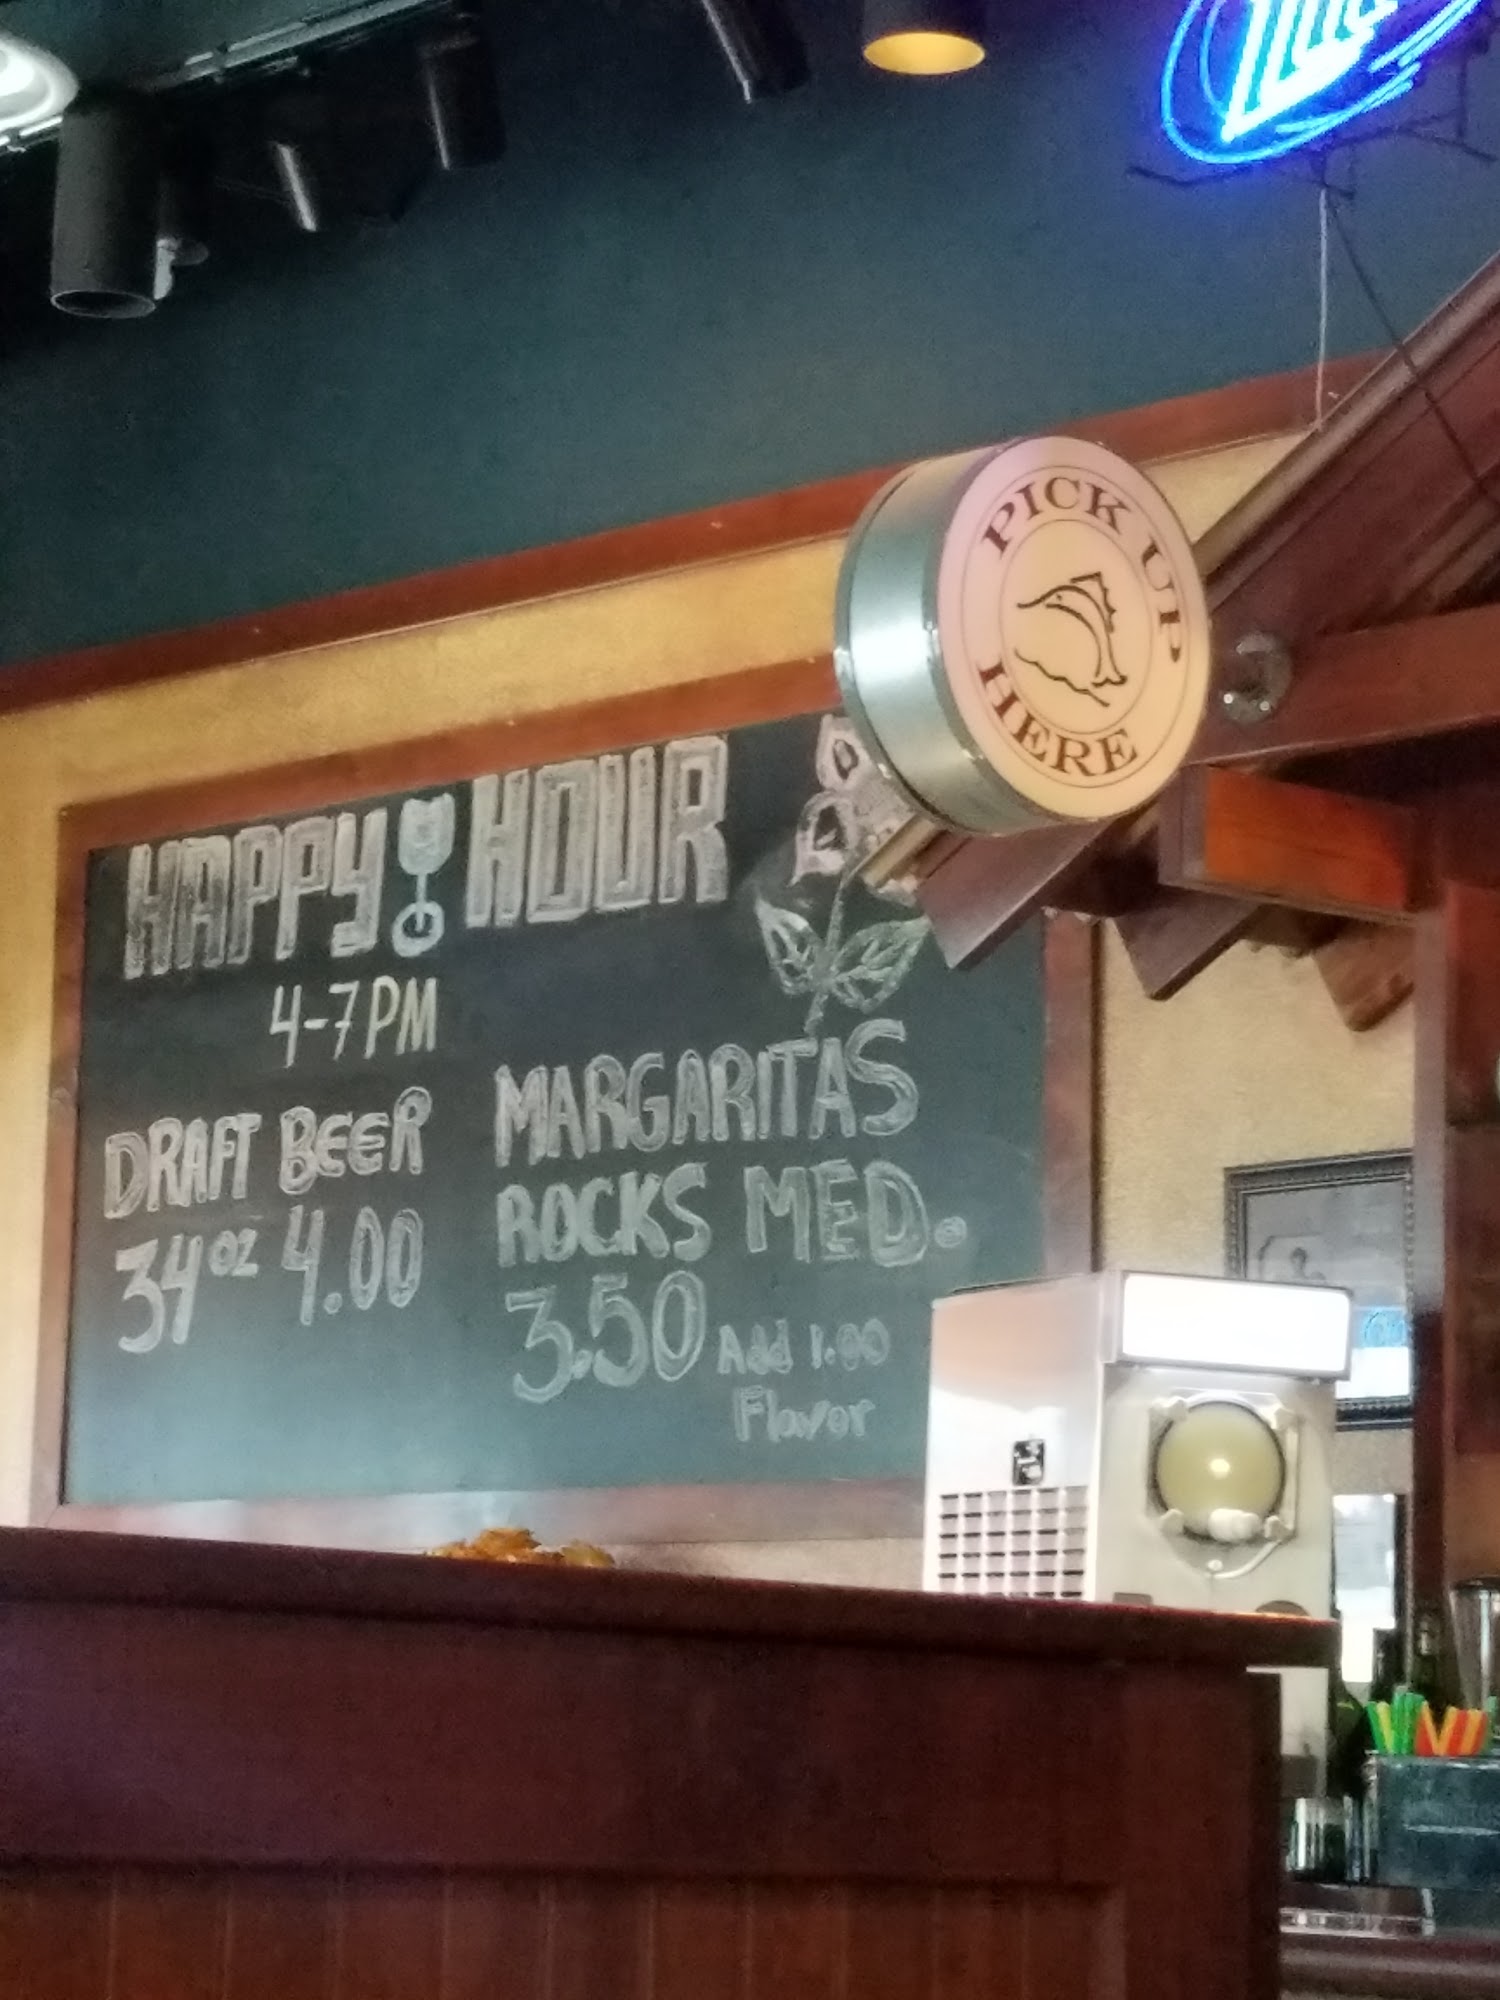 Lite
PICK UP
HERE
HAPPY HOUR
4-7PM
DRAFT BEER
34oz 4.00
MARGARITAS
ROCKS MED.
3.50 Add 1.00
Flavor